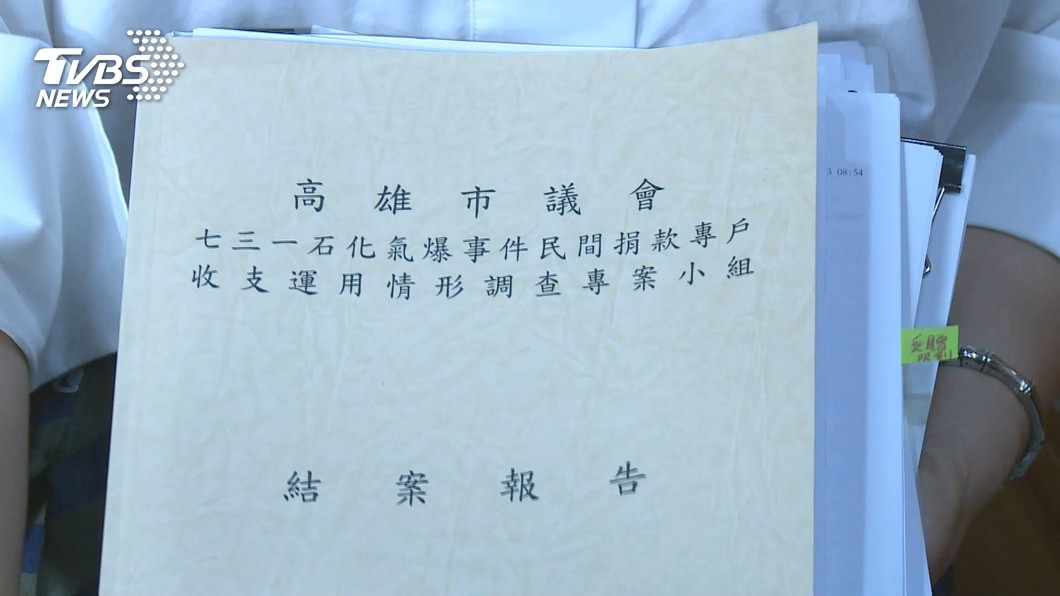 TVBS
NEWS
高雄市議會
七三一石化氣爆事件民間捐款專戶
收支運用情形調查專案小組
結案報告
3 08:54